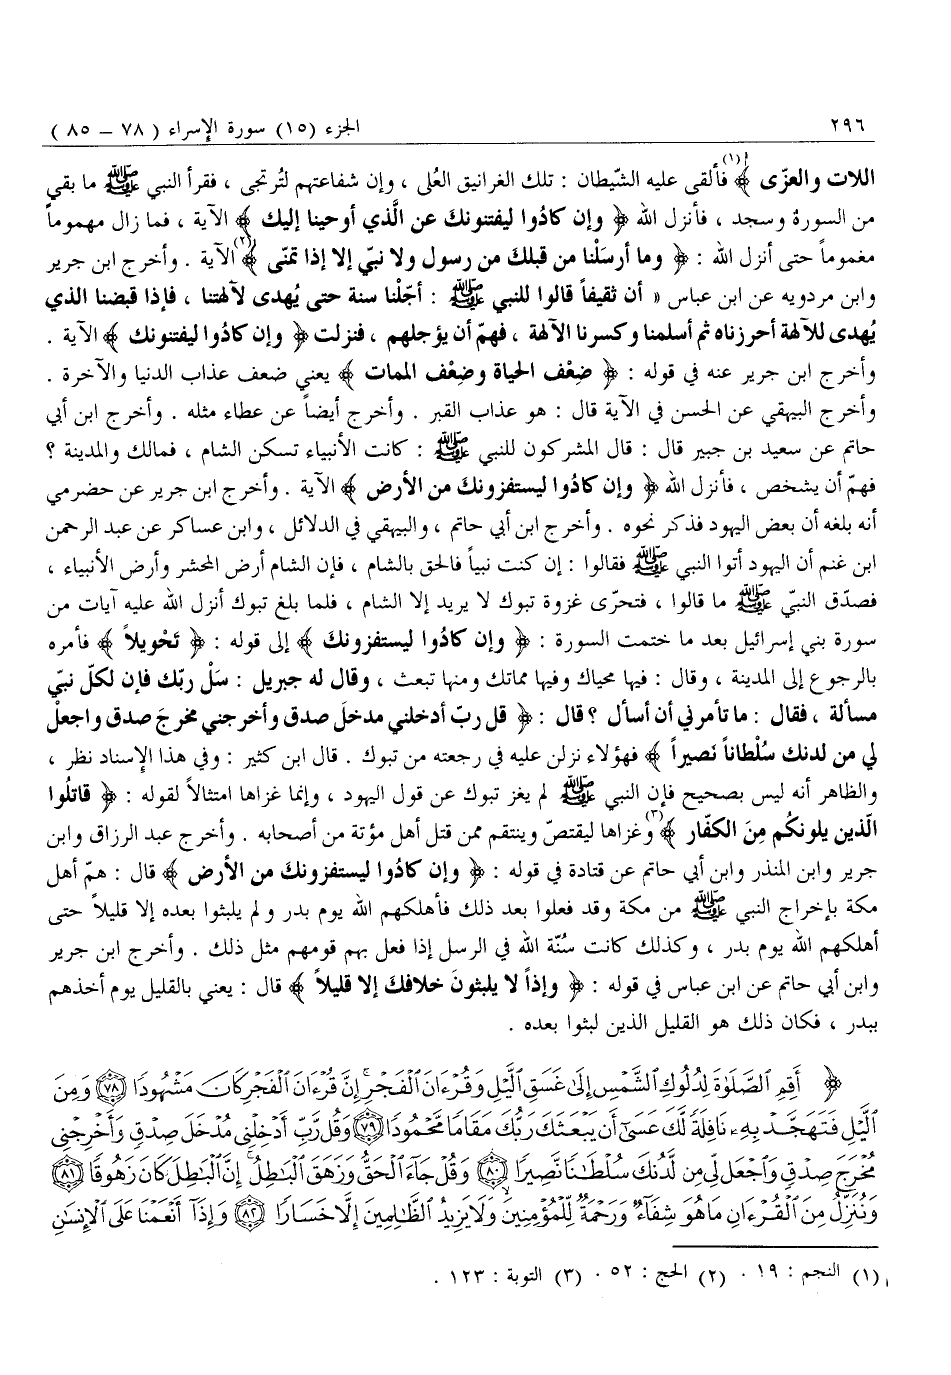 ٢٩٦ الجزء (١٥) سورة الإسراء ( ٧٨ – ٨٥ )
اللات والعزّى ﴾(١) فألقى عليه الشّيطان : تلك الغرانيق العُلى ، وإن شفاعتهم لتُرتجى ، فقرأ النبي ﷺ ما بقي
من السورة وسجد ، فأنزل الله ﴿ وإن كادُوا ليفتنونكَ عن الَّذي أوحينا إليك ﴾ الآية ، فما زال مهموماً
مغموماً حتى أنزل الله : ﴿ وما أرسَلْنا من قبلكَ من رسول ولا نبيّ إلا إذا تمنّى ﴾(٢) الآية . وأخرج ابن جرير
وابن مردويه عن ابن عباس « أن ثقيفاً قالوا للنبي ﷺ : أجّلْنا سنة حتى يُهدى لآلهتنا ، فإذا قبضنا الذي
يُهدى للآلهة أحرزناه ثم أسلمنا وكسرنا الآلهة ، فهمّ أن يؤجلهم ، فنزلت ﴿ وإن كادُوا ليفتنونك ﴾ الآية .
وأخرج ابن جرير عنه في قوله : ﴿ ضِعْف الحياة وضِعْف الممات ﴾ يعني ضعف عذاب الدنيا والآخرة .
وأخرج البيهقي عن الحسن في الآية قال : هو عذاب القبر . وأخرج أيضاً عن عطاء مثله . وأخرج ابن أبي
حاتم عن سعيد بن جبير قال : قال المشركون للنبي ﷺ : كانت الأنبياء تسكن الشام ، فمالك والمدينة ؟
فهمّ أن يشخص ، فأنزل الله ﴿ وإن كادُوا ليستفزونكَ من الأرض ﴾ الآية . وأخرج ابن جرير عن حضرمي
أنه بلغه أن بعض اليهود فذكر نحوه . وأخرج ابن أبي حاتم ، والبيهقي في الدلائل ، وابن عساكر عن عبد الرحمن
ابن غنم أن اليهود أتوا النبي ﷺ فقالوا : إن كنت نبياً فالحق بالشام ، فإن الشام أرض المحشر وأرض الأنبياء ،
فصدّق النبيّ ﷺ ما قالوا ، فتحرّى غزوة تبوك لا يريد إلا الشام ، فلما بلغ تبوك أنزل الله عليه آيات من
سورة بني إسرائيل بعد ما ختمت السورة : ﴿ وإن كادُوا ليستفزونكَ ﴾ إلى قوله : ﴿ تَحْويلاً ﴾ فأمره
بالرجوع إلى المدينة ، وقال : فيها محياك وفيها مماتك ومنها تبعث ، وقال له جبريل : سَلْ ربّك فإن لكل نبيّ
مسألة ، فقال : ما تأمرني أن أسأل ؟ قال : ﴿ قل ربّ أدخلني مدخلَ صدق وأخرجني مخرجَ صدق واجعلْ
لي من لدنك سُلْطاناً نَصيراً ﴾ فهؤلاء نزلن عليه في رجعته من تبوك . قال ابن كثير : وفي هذا الإسناد نظر ،
والظاهر أنه ليس بصحيح فإن النبي ﷺ لم يغز تبوك عن قول اليهود ، وإنما غزاها امتثالاً لقوله : ﴿ قاتلُوا
الَّذين يلونكُم مِنَ الكفّار ﴾(٣) وغزاها ليقتصّ وينتقم ممن قتل أهل مؤتة من أصحابه . وأخرج عبد الرزاق وابن
جرير وابن المنذر وابن أبي حاتم عن قتادة في قوله : ﴿ وإن كادُوا ليستفزونكَ من الأرض ﴾ قال : همّ أهل
مكة بإخراج النبي ﷺ من مكة وقد فعلوا بعد ذلك فأهلكهم الله يوم بدر ولم يلبثوا بعده إلا قليلاً حتى
أهلكهم الله يوم بدر ، وكذلك كانت سُنّة الله في الرسل إذا فعل بهم قومهم مثل ذلك . وأخرج ابن جرير
وابن أبي حاتم عن ابن عباس في قوله : ﴿ وإذاً لا يلبثونَ خلافكَ إلا قليلاً ﴾ قال : يعني بالقليل يوم أخذهم
ببدر ، فكان ذلك هو القليل الذين لبثوا بعده .
﴿ أَقِمِ ٱلصَّلَوٰةَ لِدُلُوكِ ٱلشَّمْسِ إِلَىٰ غَسَقِ ٱلَّيْلِ وَقُرْءَانَ ٱلْفَجْرِ ۖ إِنَّ قُرْءَانَ ٱلْفَجْرِ كَانَ مَشْهُودًا ۝٧٨ وَمِنَ
ٱلَّيْلِ فَتَهَجَّدْ بِهِۦ نَافِلَةً لَّكَ عَسَىٰٓ أَن يَبْعَثَكَ رَبُّكَ مَقَامًا مَّحْمُودًا ۝٧٩ وَقُل رَّبِّ أَدْخِلْنِي مُدْخَلَ صِدْقٍ وَأَخْرِجْنِي
مُخْرَجَ صِدْقٍ وَٱجْعَل لِّي مِن لَّدُنكَ سُلْطَٰنًا نَّصِيرًا ۝٨٠ وَقُلْ جَآءَ ٱلْحَقُّ وَزَهَقَ ٱلْبَٰطِلُ ۚ إِنَّ ٱلْبَٰطِلَ كَانَ زَهُوقًا ۝٨١
وَنُنَزِّلُ مِنَ ٱلْقُرْءَانِ مَا هُوَ شِفَآءٌ وَرَحْمَةٌ لِّلْمُؤْمِنِينَ ۙ وَلَا يَزِيدُ ٱلظَّٰلِمِينَ إِلَّا خَسَارًا ۝٨٢ وَإِذَآ أَنْعَمْنَا عَلَى ٱلْإِنسَٰنِ
(١) النجم : ١٩ . (٢) الحج : ٥٢ . (٣) التوبة : ١٢٣ .